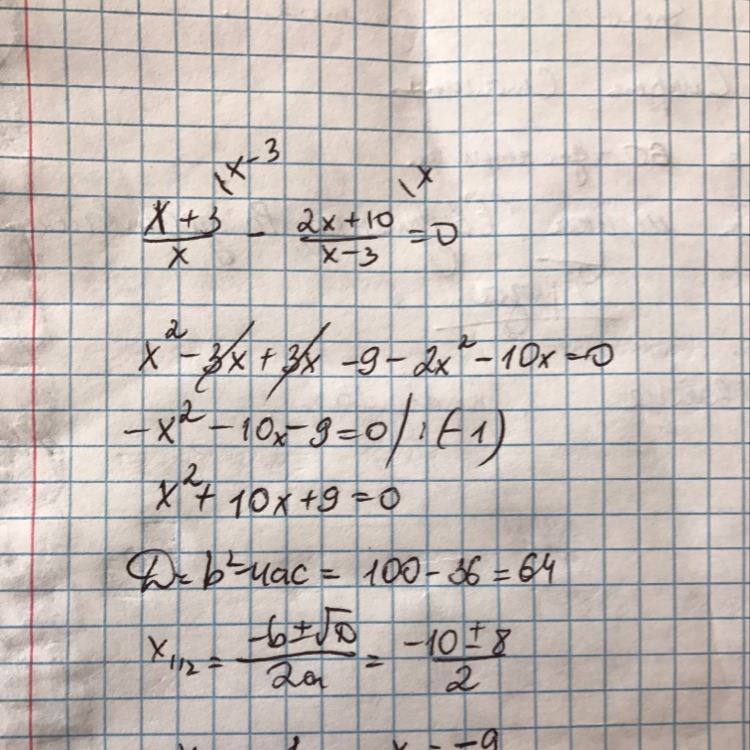 \x-3 \x
x+3/x - 2x+10/x-3 = 0
x² - 3x + 3x - 9 - 2x² - 10x = 0
-x² - 10x - 9 = 0 / : (-1)
x² + 10x + 9 = 0
D = b² - 4ac = 100 - 36 = 64
x₁,₂ = -b ± √D/2a = -10 ± 8/2
-9